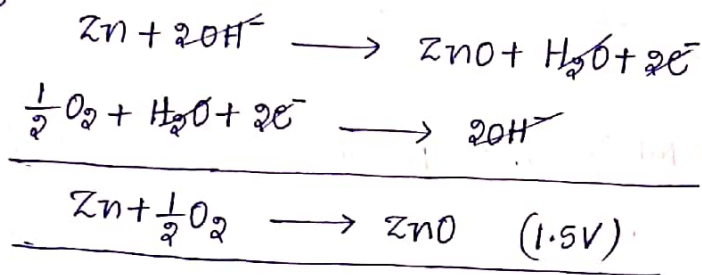 Zn + 2OH⁻ ⟶ ZnO + H₂O + 2e⁻
½ O₂ + H₂O + 2e⁻ ⟶ 2OH⁻
Zn + ½ O₂ ⟶ ZnO (1.5V)